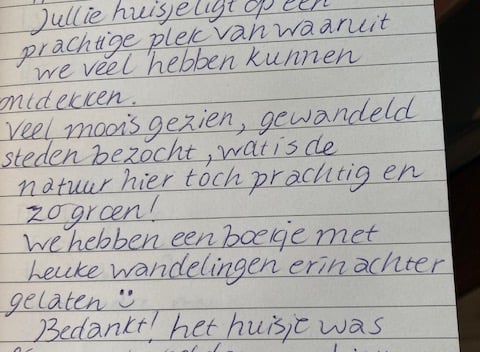 Jullie huisje ligt op een
prachtige plek van waaruit
we veel hebben kunnen
ontdekken.
Veel moois gezien, gewandeld
steden bezocht, wat is de
natuur hier toch prachtig en
zo groen!
We hebben een boekje met
leuke wandelingen erin achter
gelaten ☺
Bedankt! het huisje was